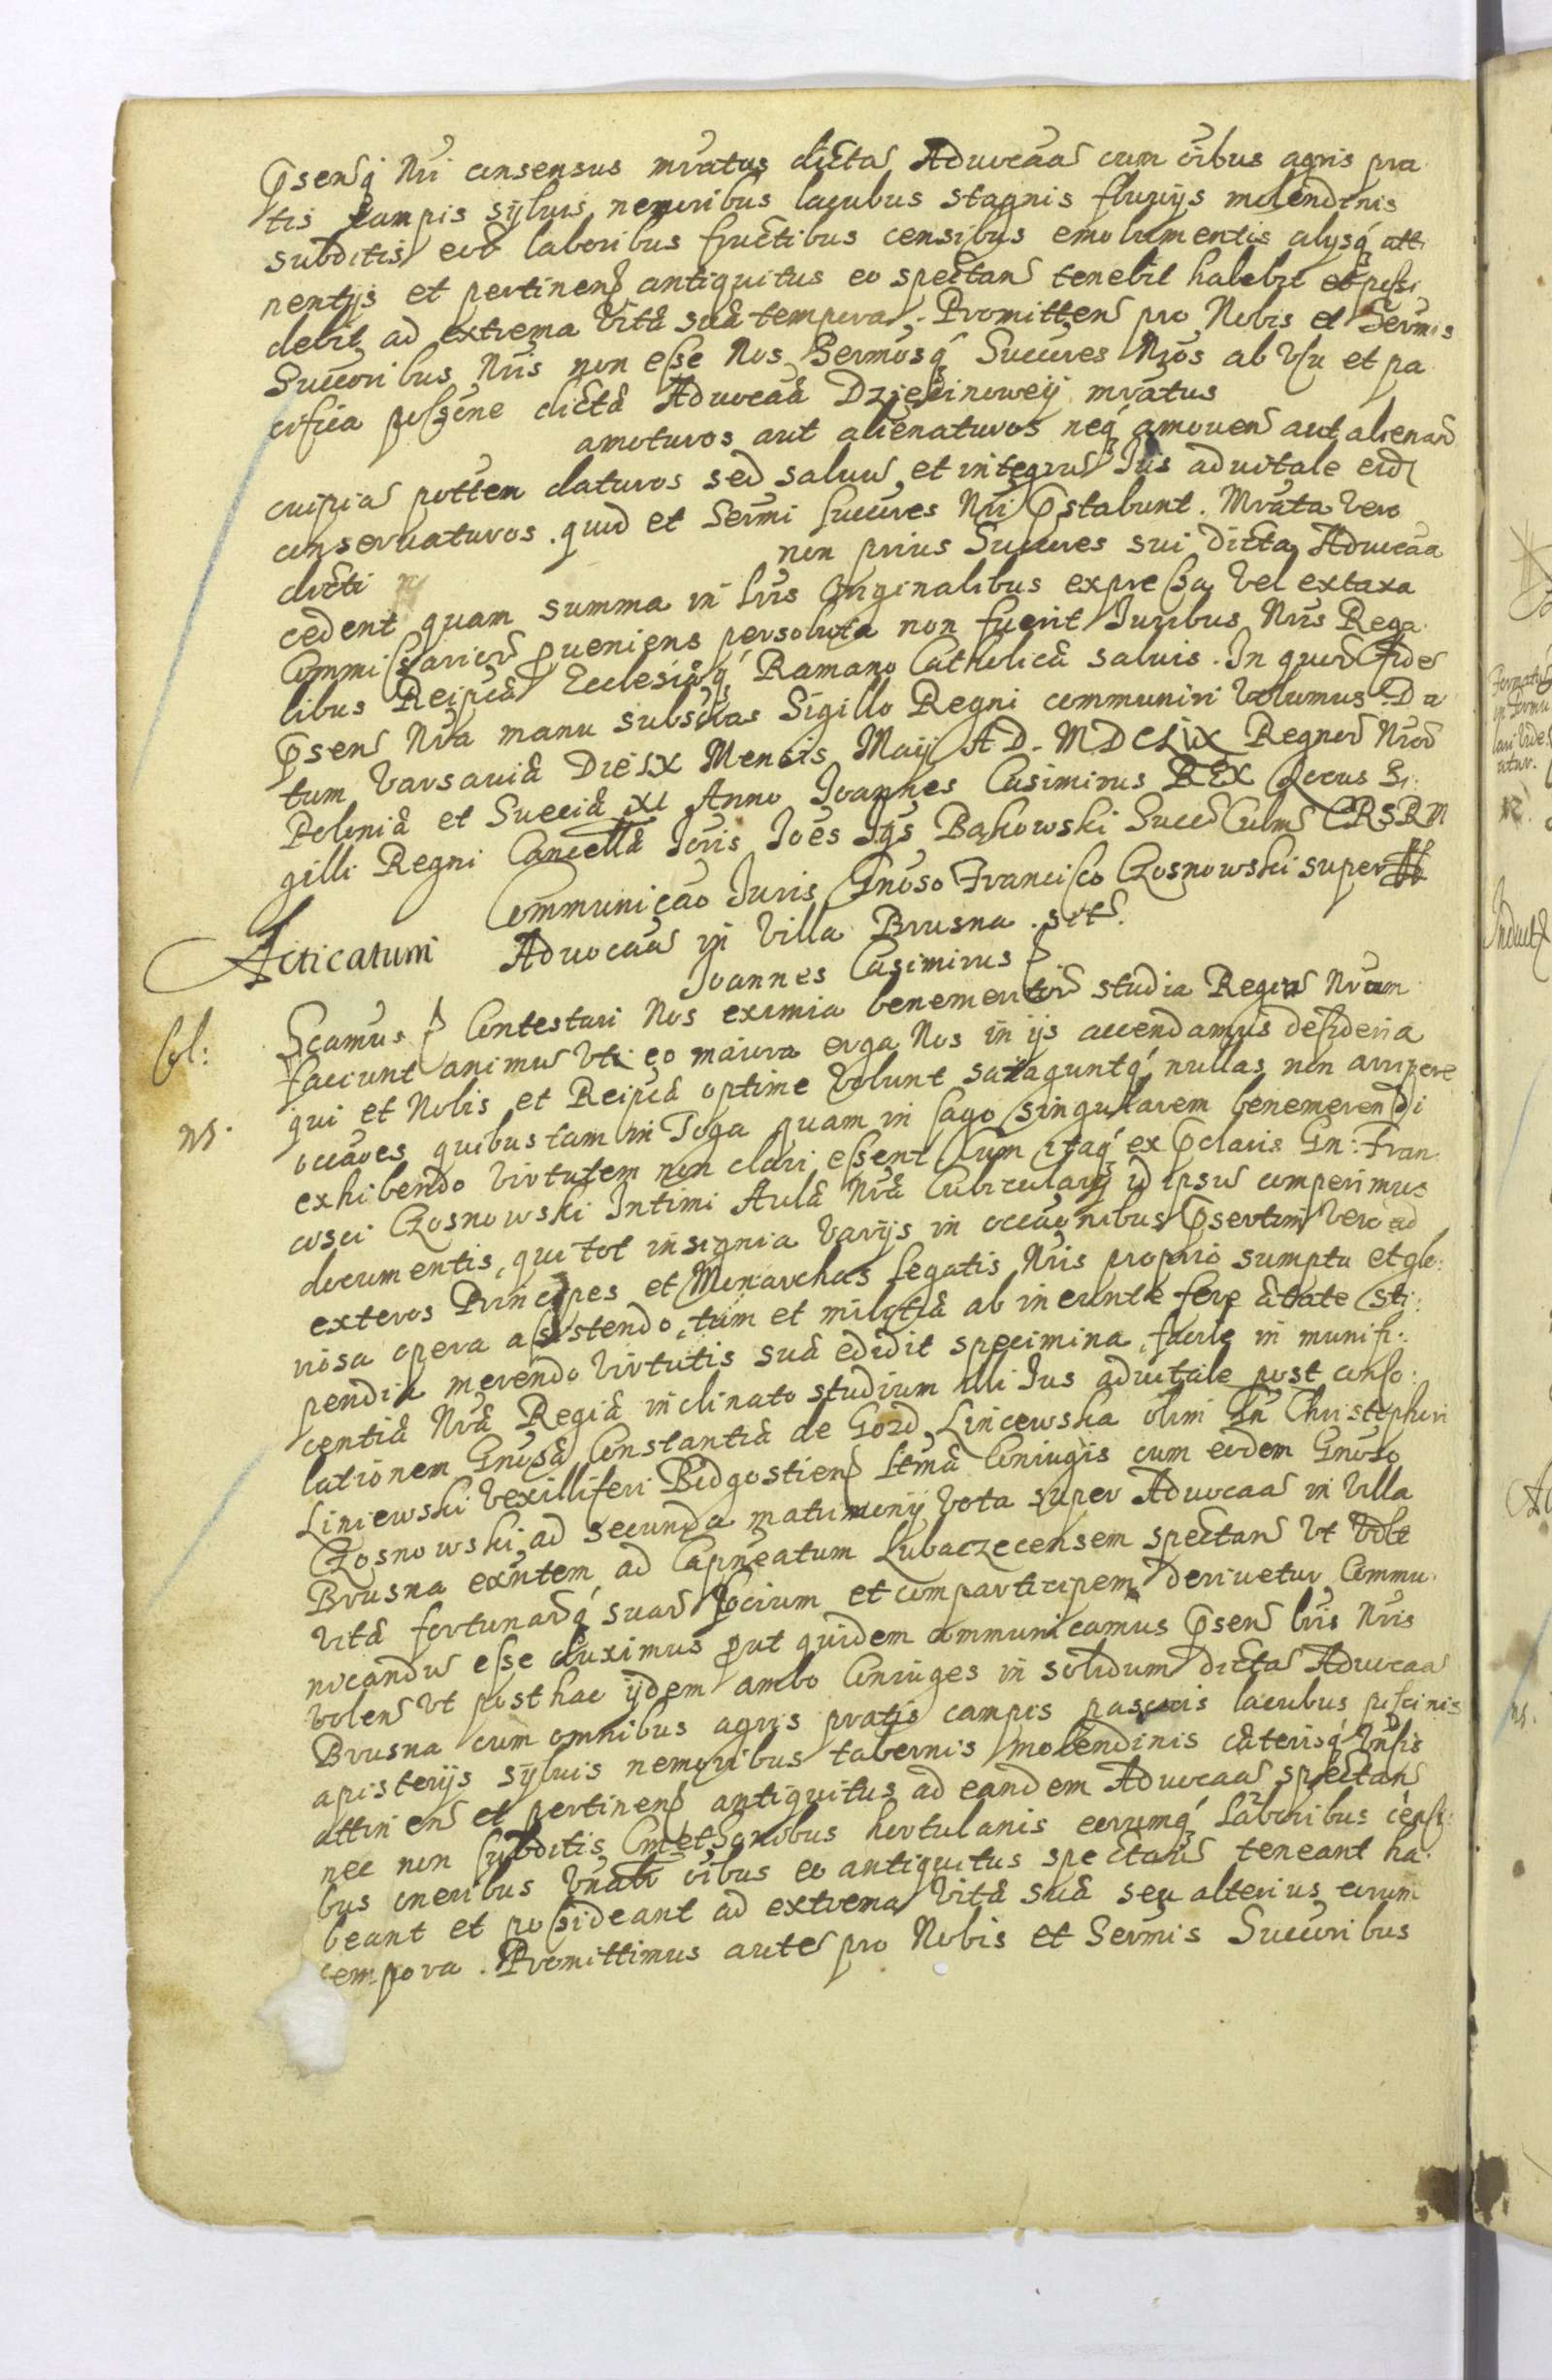 Psensq́ Nri consensus mratus dictã Aduocaã cum oĩbus agris pra
tis campis syluis nemoribus lacubus stagnis fluvijs molendinis
subditis eor̃ laboribus fructibus censibus emolumentis alysq́ atti
nentijs et pertinens antiquitus eo spectans tenebit habebit et possi
debit ad extrema vitæ suæ tempora. Promittens pro Nobis et Sermis
Succoribus Nris non esse Nos Sermosq́ Succores Nros ab vsu et pa
cifica possone dictæ Aduocaæ Dziecinowey mratus
amoturos aut alienaturos neq́ amouen aut alienan
cuipiã pottem daturos sed saluũ et integrũ Ius aduitale eid
conseruaturos. quod et Sermi Succores Nri Pstabunt. Mrata vero
dicti non prius Succores sui dicta Aduocaa
cedent quam summa in Lris Originalibus expressa vel extaxa
Commissarior̃ proueniens persoluta non fuerit Iuribus Nris Rega
libus Reipcæ Ecclesiæq́ Ramano Catholicæ saluis. In quor̃ fidẽ
Psens Nra manu subscras Sigillo Regni communiri volumus. Da
tum Varsauiæ Die IX Mensis Maij AD. MDCLIX Regnor̃ Nror̃
Poloniæ et Sueciæ XI Anno Ioannes Casimirus REX Locus Si
gilli Regni Cancellæ Ioris Ioes Igs Bąkowski Succ Culm CRSRM
Communicao Iuris Gnoso Francisco Czosnowski super
Acticatum Aduocaã in Villa Brusna sitã.
Ioannes Casimirus
Sol: Scamus Contestari Nos eximia benemeritor̃ studia Regiũ Nrum
faciunt animũ vti eo maiora erga Nos in ijs accendamus desideria
qui et Nobis et Reipcæ optime volunt sataguntq́ nullas non arripere
ns. occaoes quibus tam in Toga quam in Sago singularem benemerendi
exhibendo virtutem non clari essent. Cum itaq́ ex Pclaris Gn: Fran
cisci Czosnowski Intimi Aulæ Nræ Cubicularij id ipsũ comperimus
documentis, qui tot insignia varijs in occaonibus Psertim vero ad
exteros Principes et Monarchas legatis Nris proprio sumptu et glo:
riosa opera assistendo, tum et militiæ ab ineunte fere ætate sti:
pendia merendo virtutis suæ edidit specimina, facile in munifi:
centiæ Nræ Regiæ inclinato studium illi Ius aduitale post conso:
lationem Gnosæ Constantiæ de Gozd Lincewska olim Gn Christophori
Liniewski Vexilliferi Bidgostiens Ltmæ Coniugis cum eodem Gnoso
Czosnowski, ad secunda matrimonij vota super Aduocaã in Villa
Brusna exñtem ad Capneatum Lubaczecensem spectan vt
vitæ fortunarq́ suar̃ Socium et comparticipem deriuetur Commu
nicandũ esse duximus prout quidem communicamus Psens Lris Nris
volens vt post hac ijdem ambo Coniuges in solidum dictã Aduocaã
Brusna cum omnibus agris pratis campis pascuis lacubus piscinis
apisterijs syluis nemoribus tabernis molendinis cæterisq́ vnsis
attinens et pertinens antiquitus ad eandem Aduocaã spectans
nec non subditis Cmethonibus hortulanis eorumq́ laboribus censi
bus oneribus vnatr oĩbus eo antiquitus spectans teneant ha
beant et possideant ad extrema vitæ suæ seu alterius eorum
tempora. Promittimus autẽ pro Nobis et Sermis Succoribus